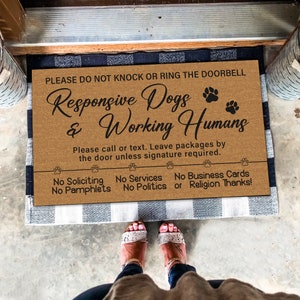 PLEASE DO NOT KNOCK OR RING THE DOORBELL
Responsive Dogs
& Working Humans
Please call or text. Leave packages by
the door unless signature required.
No Soliciting No Services No Business Cards
No Pamphlets No Politics or Religion Thanks!